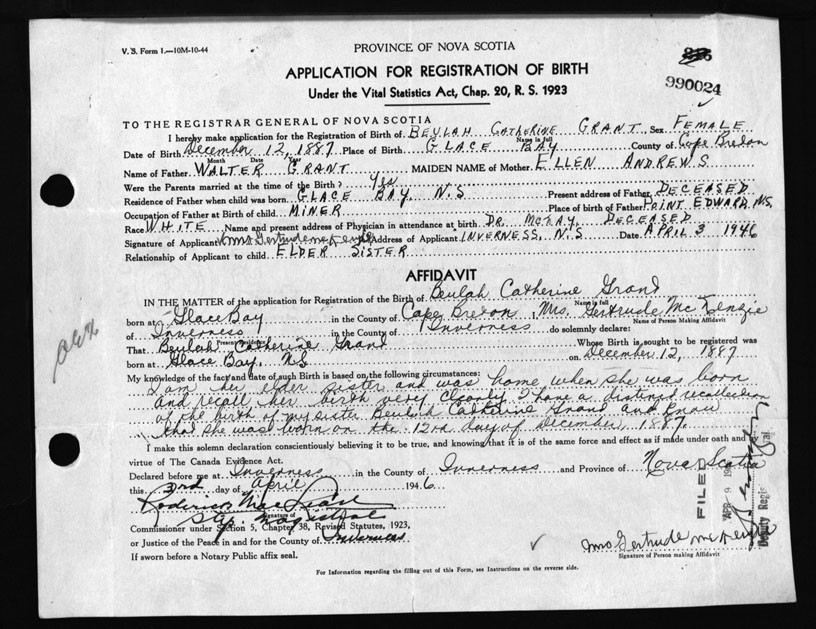 V. S. Form 1.—10M-10-44
PROVINCE OF NOVA SCOTIA
APPLICATION FOR REGISTRATION OF BIRTH
Under the Vital Statistics Act, Chap. 20, R. S. 1923
990024
TO THE REGISTRAR GENERAL OF NOVA SCOTIA
I hereby make application for the Registration of Birth of BEULAH CATHERINE GRANT Sex FEMALE
Name in full
Date of Birth December 12, 1887 Place of Birth GLACE BAY County of Cape Breton
Month Date Year
Name of Father WALTER GRANT MAIDEN NAME of Mother ELLEN ANDREWS
Were the Parents married at the time of the Birth? Yes
Residence of Father when child was born GLACE BAY, N.S Present address of Father DECEASED
Occupation of Father at Birth of child MINER Place of birth of Father POINT EDWARD, NS.
Race WHITE Name and present address of Physician in attendance at birth DR. McKAY, DECEASED
Signature of Applicant Mrs Gertrude McKenzie Address of Applicant INVERNESS, N.S Date APRIL 3 1946
Relationship of Applicant to child ELDER SISTER
AFFIDAVIT
IN THE MATTER of the application for Registration of the Birth of Beulah Catherine Grand
Name in full
born at Glace Bay in the County of Cape Breton, Mrs. Gertrude McKenzie
Name of Person Making Affidavit
of Inverness in the County of Inverness do solemnly declare:
Present residence
That Beulah Catherine Grand Whose Birth is sought to be registered was
born at Glace Bay, NS on December 12, 1887
My knowledge of the fact and date of such Birth is based on the following circumstances:
I am her elder sister and was home when she was born
and recall her birth very clearly I have a distinct recollection
of the birth of my sister Beulah Catherine Grand and know
that she was born on the 12nd day of December 1887.
I make this solemn declaration conscientiously believing it to be true, and knowing that it is of the same force and effect as if made under oath and
virtue of The Canada Evidence Act.
Declared before me at Inverness in the County of Inverness and Province of Nova Scotia
this 3rd day of April 1946
Signature of
Commissioner under Section 5, Chapter 38, Revised Statutes, 1923,
or Justice of the Peace in and for the County of Inverness
If sworn before a Notary Public affix seal.
FILED
APR 9
Deputy Regis
Mrs Gertrude McKenzie
Signature of Person making Affidavit
For Information regarding the filling out of this Form, see Instructions on the reverse side.